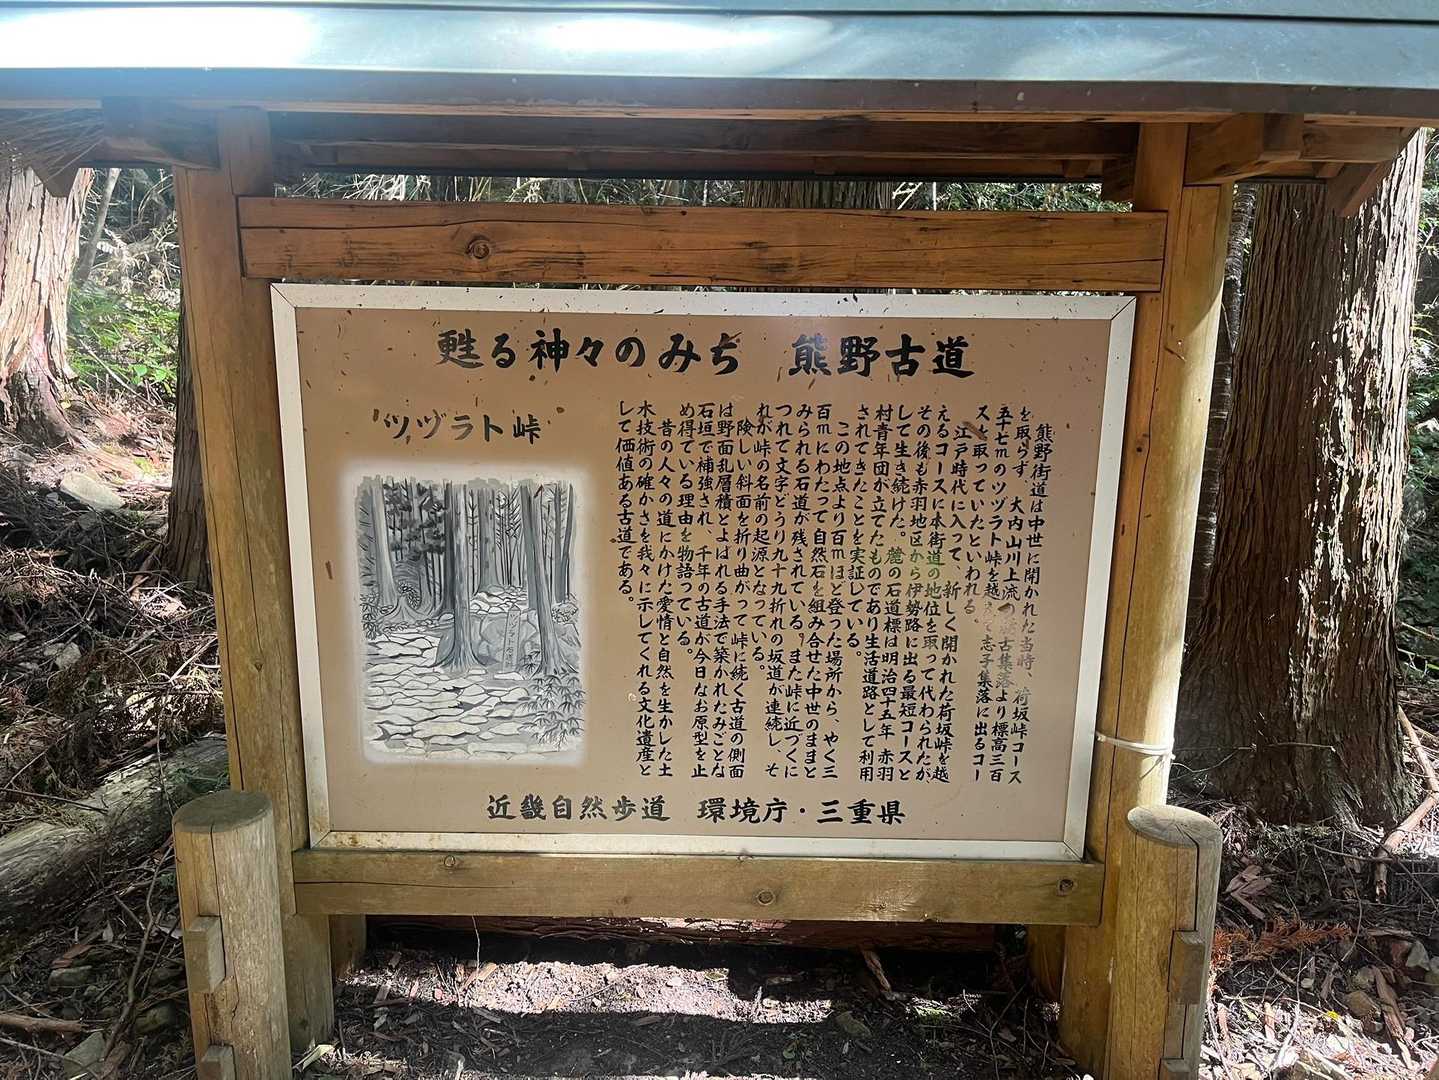 甦る神々のみち　熊野古道
ツヅラト峠
熊野街道は中世に開かれた当時、荷坂峠コース
を取らず、大内山川上流の 古集落より標高三百
五十七mのツヅラト峠を越えて志子集落に出るコー
スを取っていたといわれる。
江戸時代に入って、新しく開かれた荷坂峠を越
えるコースに本街道の地位を取って代わられたが
その後も赤羽地区から伊勢路に出る最短コースと
して生き続けた。麓の石道標は明治四十五年 赤羽
村青年団が立てたものであり生活道路として利用
されてきたことを実証している。
この地点より百mほど登った場所から、やく三
百mにわたって自然石を組み合せた中世のままと
みられる石道が残されている。また峠に近づくに
つれて文字どうり九十九折れの坂道が連続し、そ
れが峠の名前の起源となっている。
険しい斜面を折り曲がって峠に続く古道の側面
は野面乱層積とよばれる手法で築かれたみごとな
石垣で補強され、千年の古道が今日なお原型を止
め得ている理由を物語っている。
昔の人々の道にかけた愛情と自然を生かした土
木技術の確かさを我々に示してくれる文化遺産と
して価値ある古道である。
近畿自然歩道　環境庁・三重県